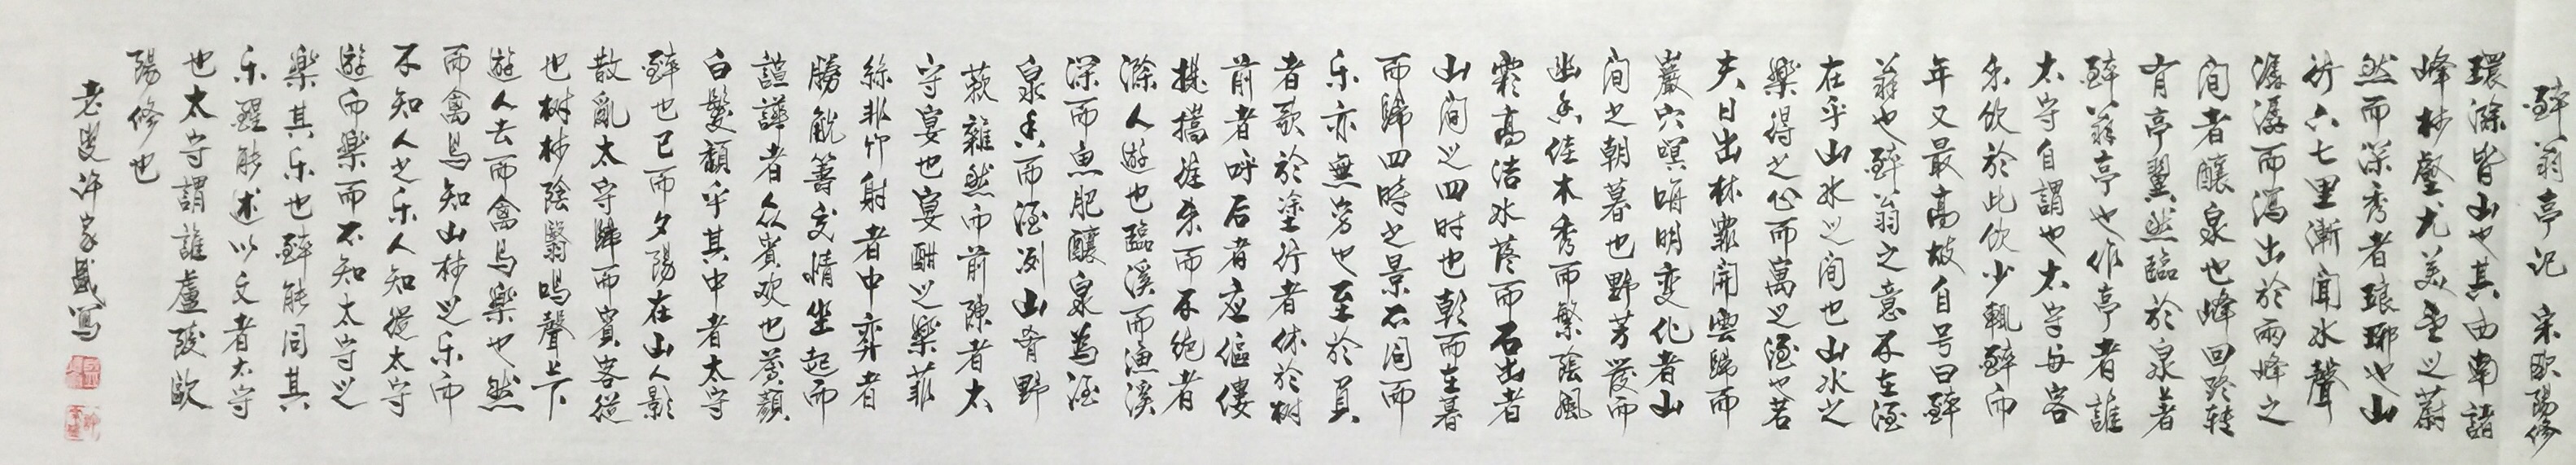 醉翁亭记 宋欧陽修
環滁皆山也其西南諸
峰林壑尤美望之蔚
然而深秀者琅琊也山
行六七里漸聞水聲
潺潺而瀉出於兩峰之
间者釀泉也峰回路转
有亭翼然臨於泉上者
醉翁亭也作亭者誰
太守自謂也太守与客
来饮於此饮少輒醉而
年又最高故自号曰醉
翁也醉翁之意不在酒
在乎山水之间也山水之
樂得之心而寓之酒也若
夫日出林霏開雲歸而
巖穴暝晦明变化者山
间之朝暮也野芳發而
幽香佳木秀而繁陰風
霜高洁水落而石出者
山间之四时也朝而往暮
而歸四時之景不同而
乐亦無穷也至於負
者歌於塗行者休於树
前者呼后者应傴僂
提携往来而不绝者
滁人遊也臨溪而漁溪
深而魚肥釀泉為酒
泉香而酒洌山肴野
蔌雜然而前陳者太
守宴也宴酣之樂非
絲非竹射者中弈者
勝觥籌交错坐起而
諠譁者众賓欢也蒼顏
白髮頹乎其中者太守
醉也已而夕陽在山人影
散亂太守歸而賓客從
也树林陰翳鳴聲上下
遊人去而禽鸟樂也然
而禽鸟知山林之乐而
不知人之乐人知從太守
遊而樂而不知太守之
樂其乐也醉能同其
乐醒能述以文者太守
也太守謂誰廬陵欧
陽修也
老叟許家盛寫